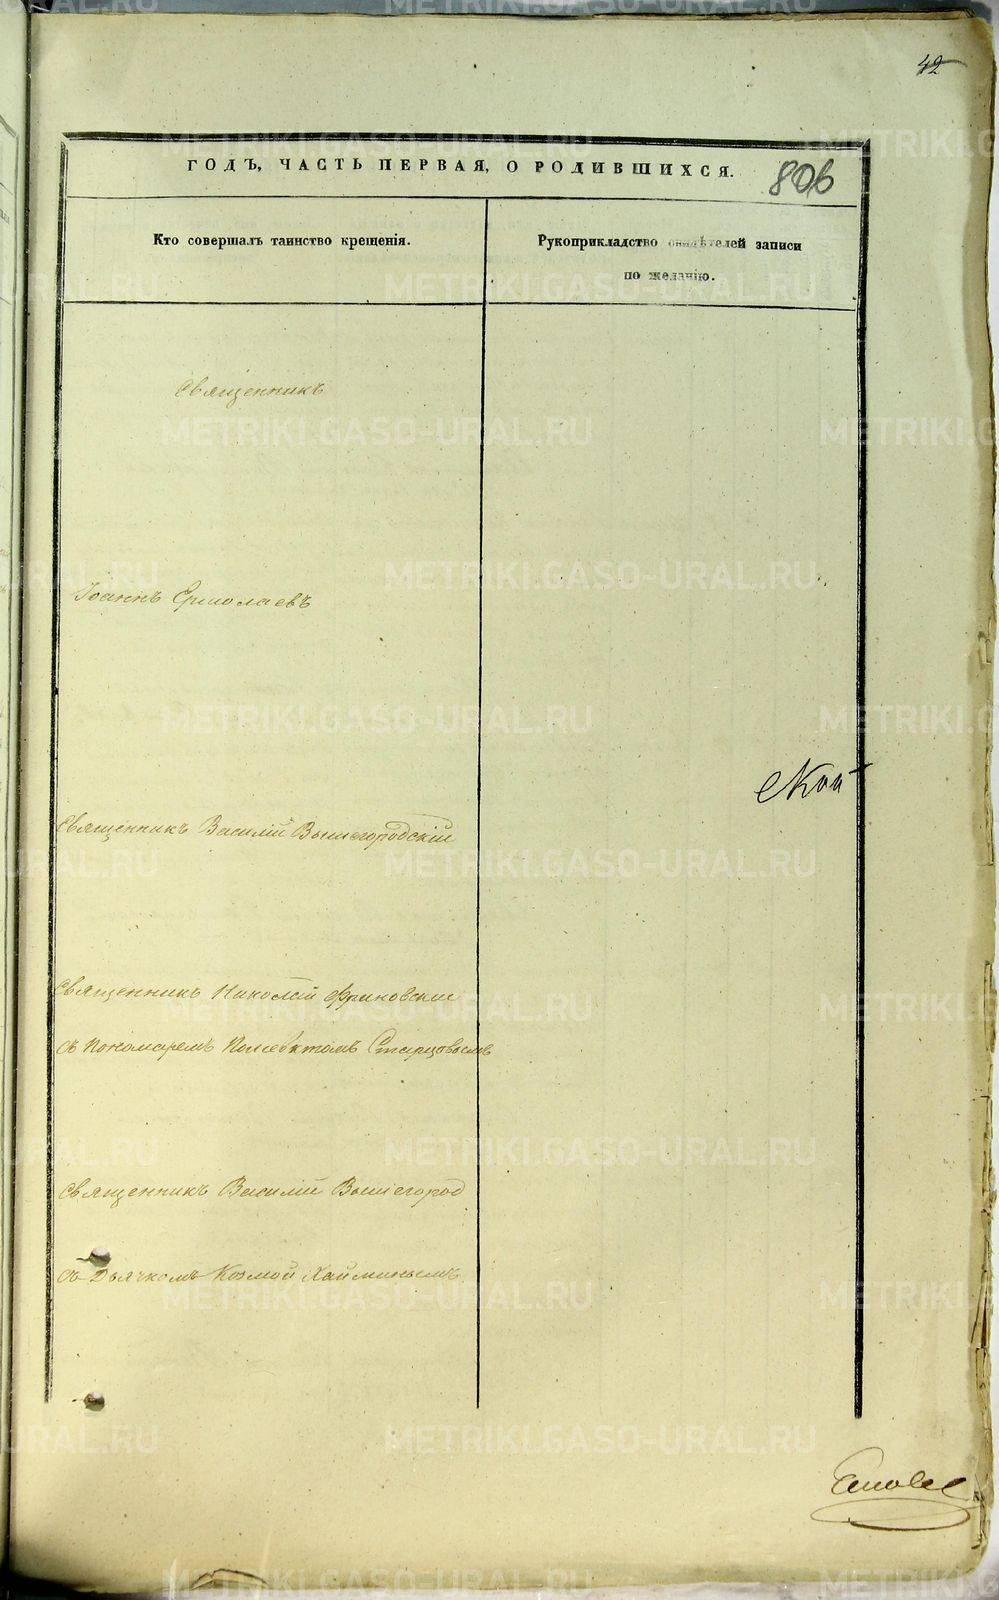 42
ГОДЪ, ЧАСТЬ ПЕРВАЯ, О РОДИВШИХСЯ.
806
Кто совершалъ таинство крещенія.
Рукоприкладство свидѣтелей записи
по желанію.
Священникъ
Іоаннъ Ермолаевъ
Священникъ Василій Вышегородскій
Священникъ Николай
съ Пономаремъ Полиевктомъ Старцовымъ
Священникъ Василій Вышегород
съ Дьячкомъ Козмой
METRIKI.GASO-URAL.RU